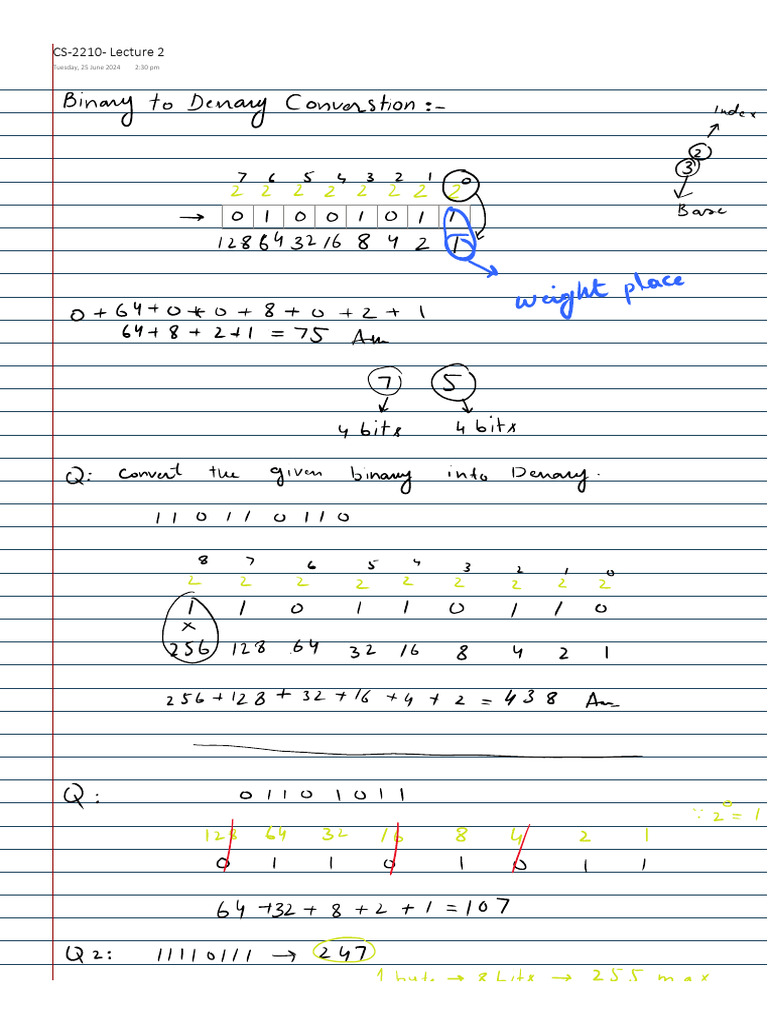 CS-2210- Lecture 2
Tuesday, 25 June 2024 2:30 pm
Binary to Denary Converstion :-
Index
7 6 5 4 3 2 1 0
2 2 2 2 2 2 2 2
3 2
Base
→ 0 1 0 0 1 0 1 1
128 64 32 16 8 4 2 1
weight place
0 + 64 + 0 + 0 + 8 + 0 + 2 + 1
64 + 8 + 2 + 1 = 75 Ans
7 5
4 bits 4 bits
Q: Convert the given binary into Denary.
1 1 0 1 1 0 1 1 0
8 7 6 5 4 3 2 1 0
2 2 2 2 2 2 2 2 2
1 1 0 1 1 0 1 1 0
×
256 128 64 32 16 8 4 2 1
256 + 128 + 32 + 16 + 4 + 2 = 438 Ans
Q: 0 1 1 0 1 0 1 1
∵ 2⁰ = 1
128 64 32 16 8 4 2 1
0 1 1 0 1 0 1 1
64 + 32 + 8 + 2 + 1 = 107
Q 2: 11110111 → 247
1 byte → 8 bits → 255 max